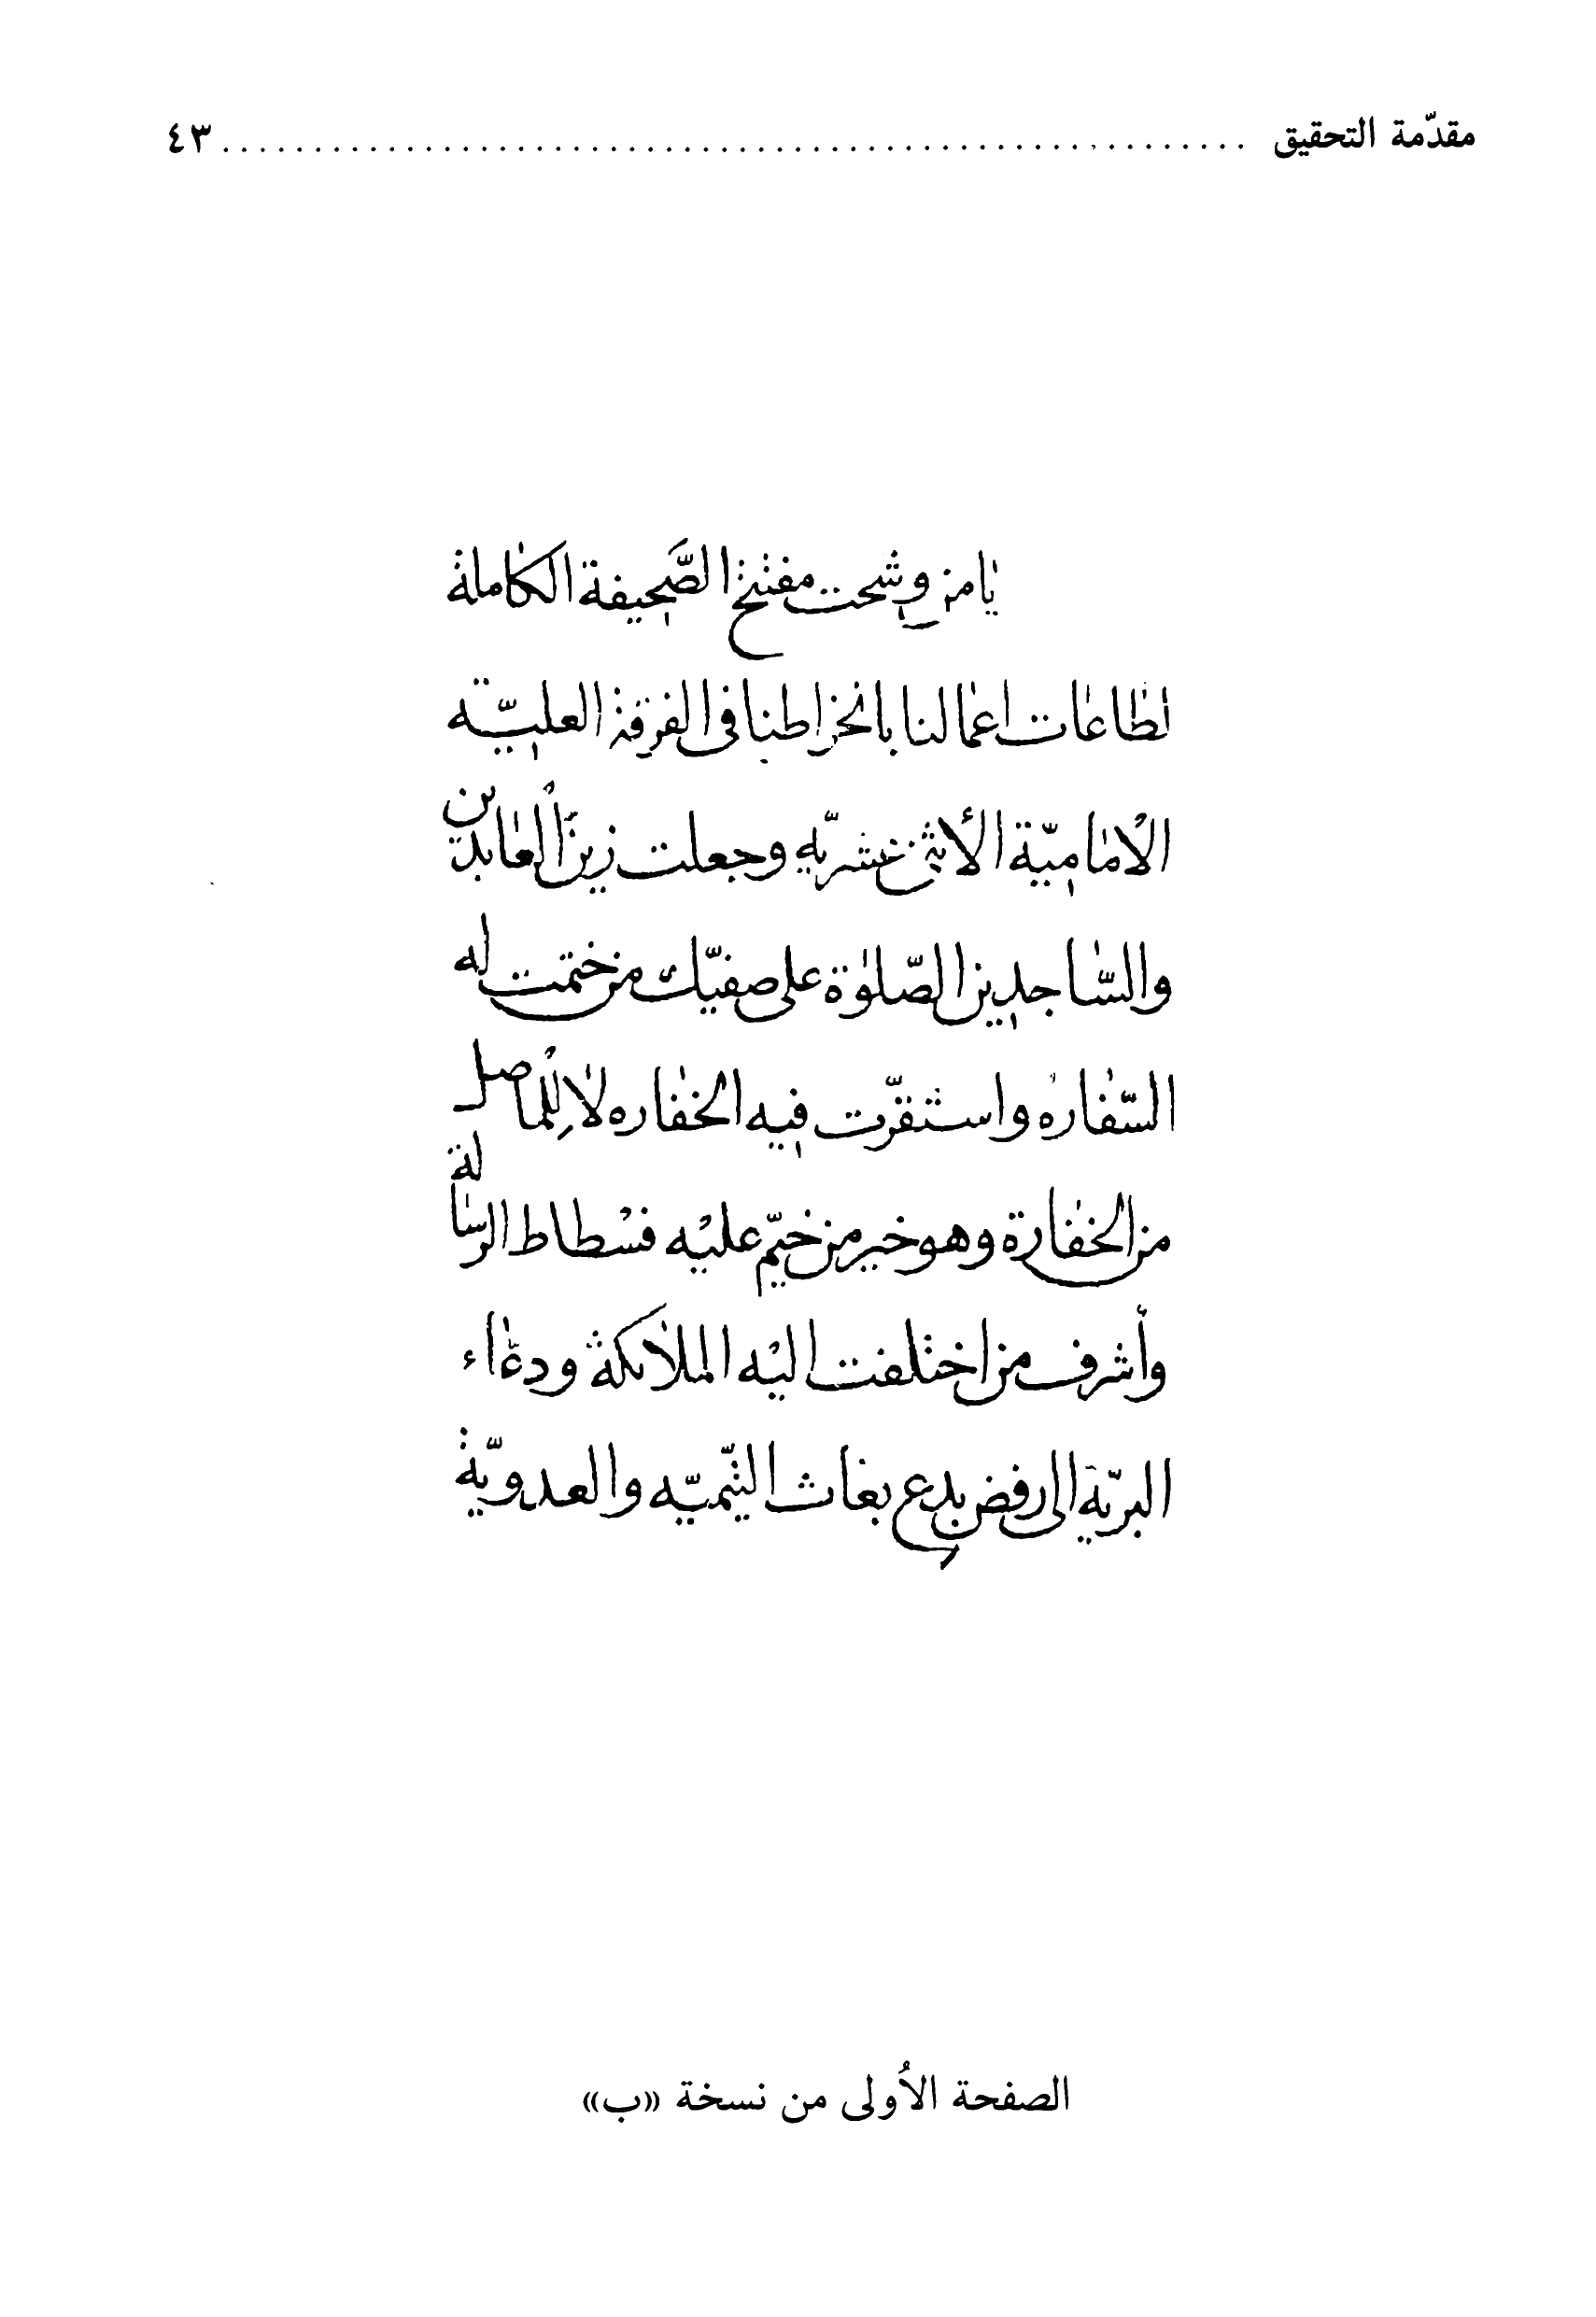 مقدّمة التحقيق ........................................................ ٤٣
يا من وشحت مفتتح الصّحيفة الكاملة
لطاعات اعمالنا بانخراطنا في الفرقة العليّة
الامامیّة الأثنى عشريّه وجعلت زين العابدين
والسّاجدين الصّلوة على صفيّك من ختمت له
السّفاره واستقرّت فيه الخفاره لا
من الخفارة وهو خير من خيّم عليه فسطاط الرسالة
وأشرف من اختلفت اليه الملائكة ودعاء
البريّة الى رفض بدع بغاث التيميّه والعدويّة
الصفحة الأُولى من نسخة «ب»